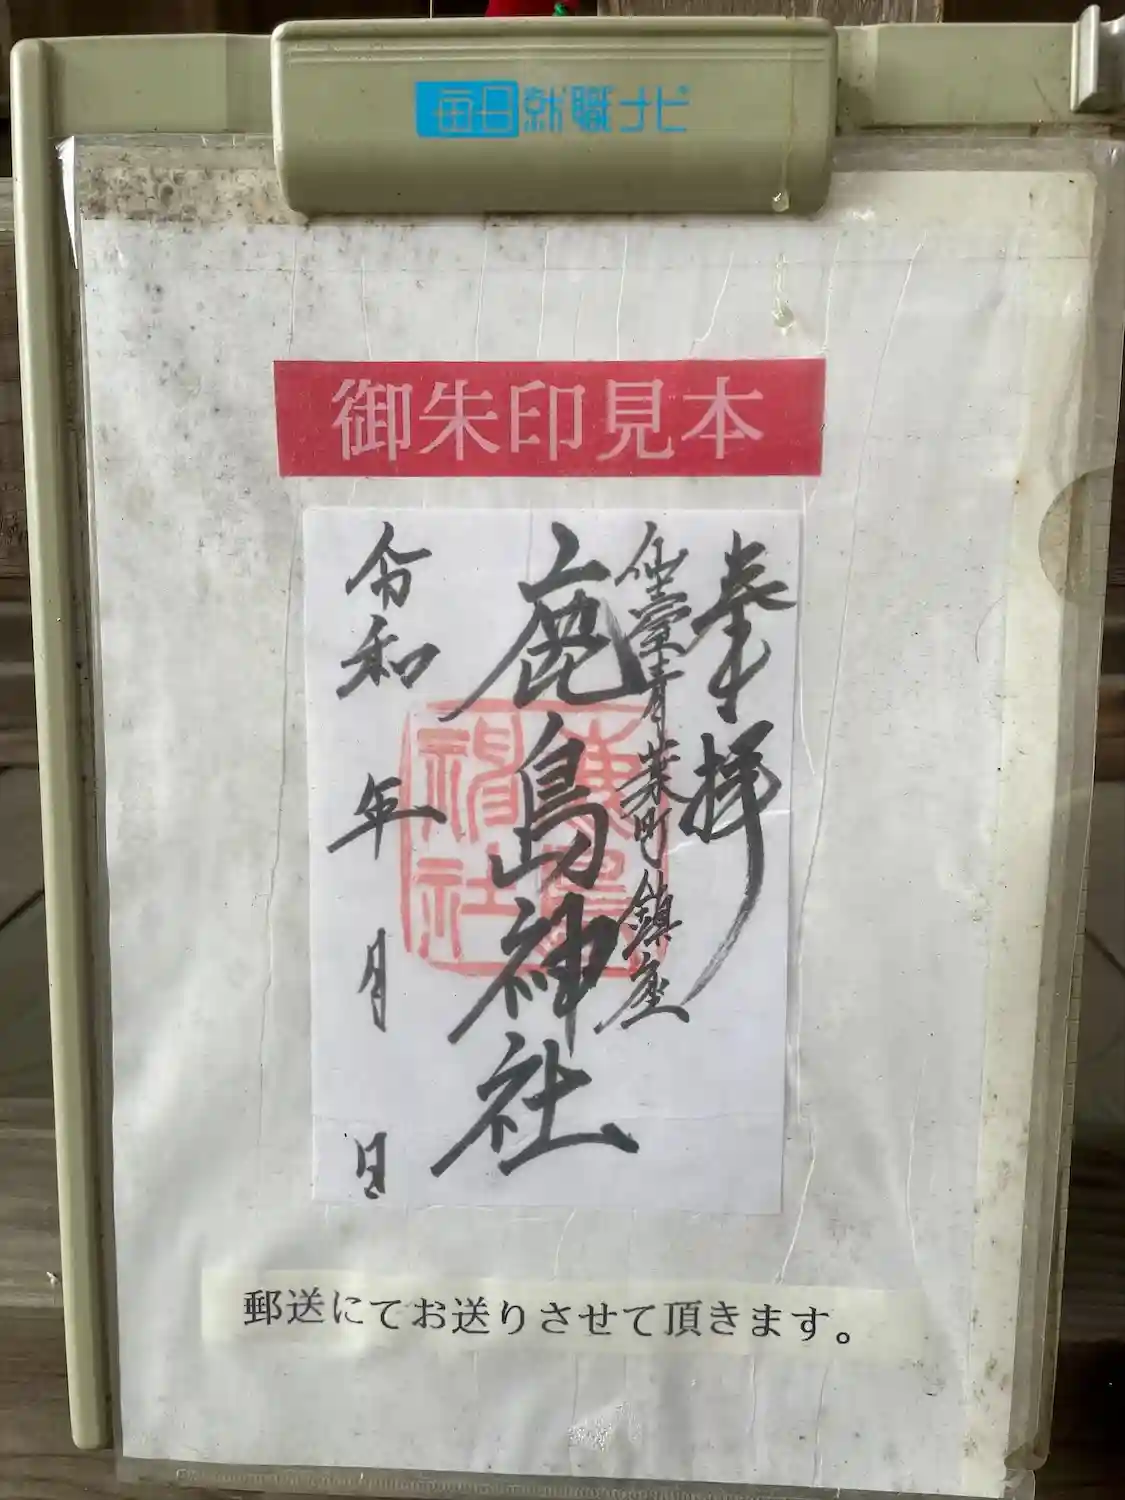 毎日就職ナビ
御朱印見本
奉拝
仙臺青葉町鎮座
鹿島神社
令和 年 月 日
鹿島
神社
郵送にてお送りさせて頂きます。